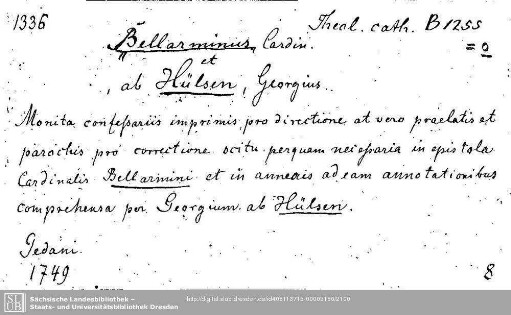 1336
Theol. cath. B 1255
= 0
Bellarminus, Cardin.
et
ab Hülsen, Georgius.
Monita confessariis imprimis pro directione at vero praelatis et
parochis pro correctione scitu perquam necessaria in epistola
Cardinalis Bellarmini et in annexis ad eam annotationibus
comprehensa per Georgium ab Hülsen.
Gedani.
1749
8
SLUB
Sächsische Landesbibliothek –
Staats- und Universitätsbibliothek Dresden